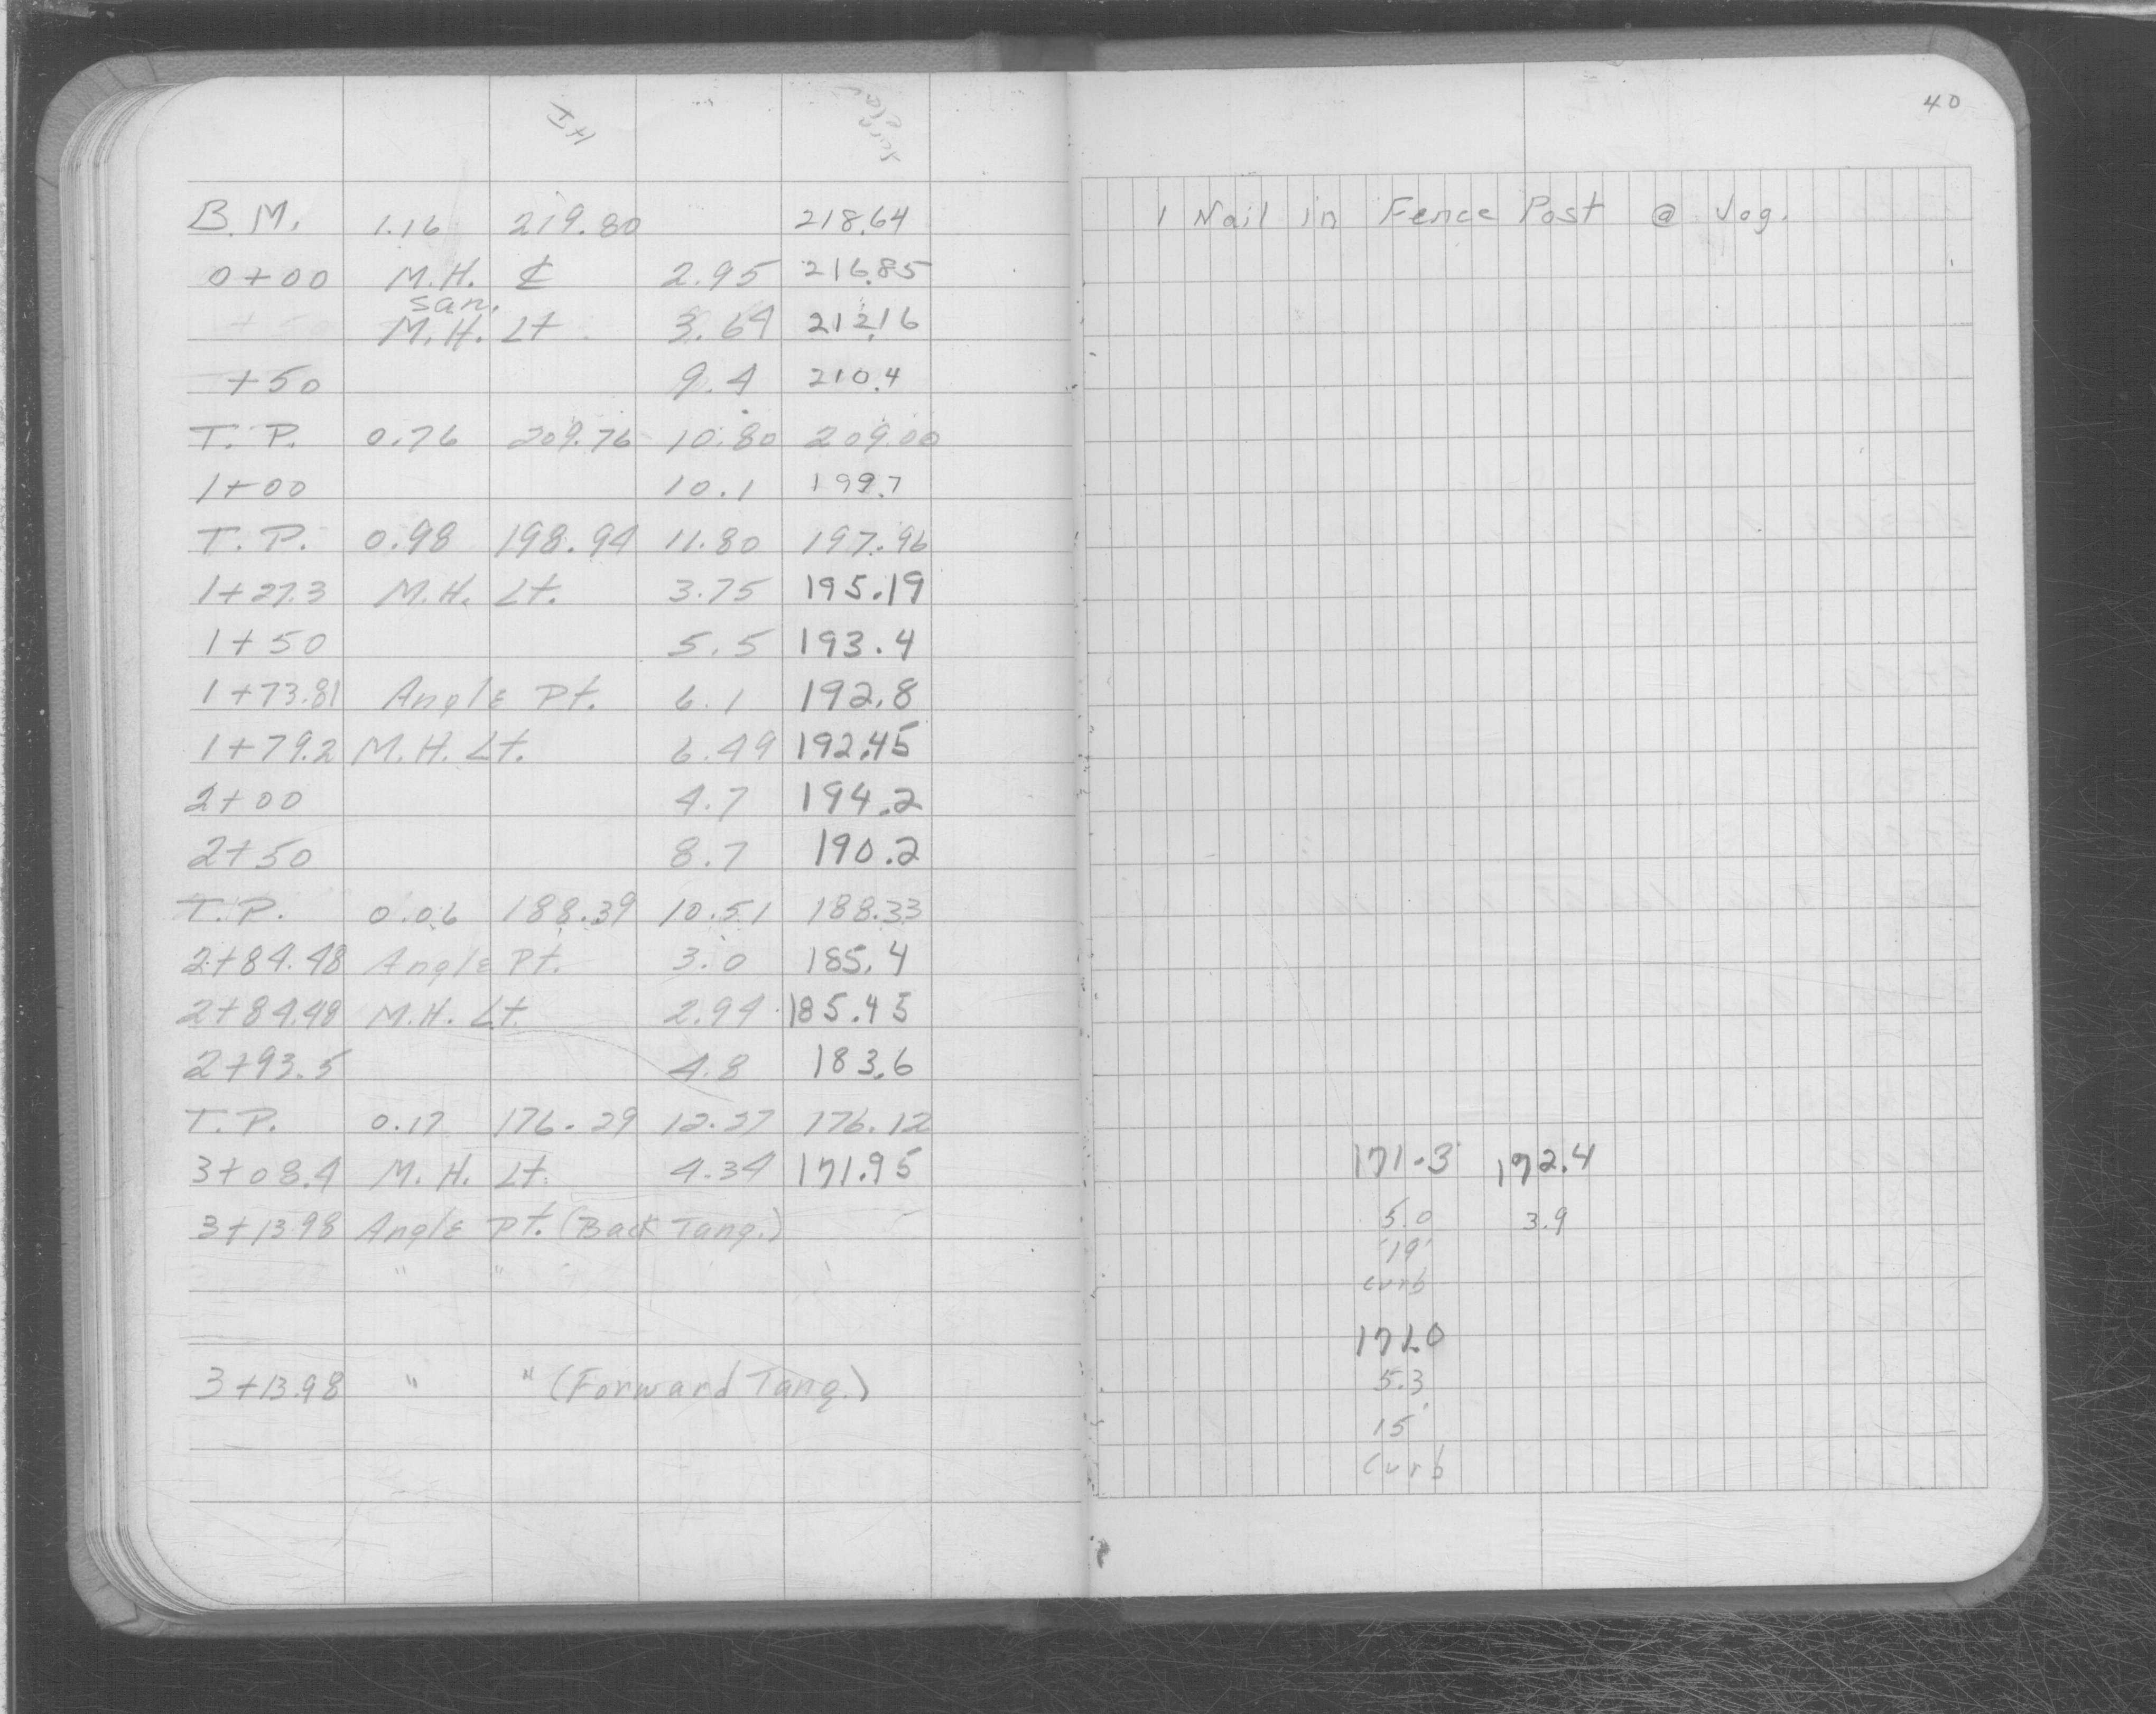 40
HI
B.M. 1.16 219.80 218.64 1 Nail in Fence Post @ Jog.
0+00 M.H. ₵ 2.95 216.85
san.
M.H. Lt 3.64 212.16
+50 9.4 210.4
T.P. 0.76 209.76 10.80 209.00
1+00 10.1 199.7
T.P. 0.98 198.94 11.80 197.96
1+27.3 M.H. Lt. 3.75 195.19
1+50 5.5 193.4
1+73.81 Angle Pt. 6.1 192.8
1+79.2 M.H. Lt. 6.49 192.45
2+00 4.7 194.2
2+50 8.7 190.2
T.P. 0.06 188.39 10.51 188.33
2+84.48 Angle Pt. 3.0 185.4
2+84.48 M.H. Lt. 2.94 185.45
2+93.5 4.8 183.6
T.P. 0.17 176.29 12.27 176.12
3+08.4 M.H. Lt. 4.34 171.95 171.3 172.4
3+13.98 Angle Pt. (Back Tang.) 5.0 3.9
19'
" " curb
171.0
3+13.98 " " (Forward Tang.) 5.3
15'
Curb